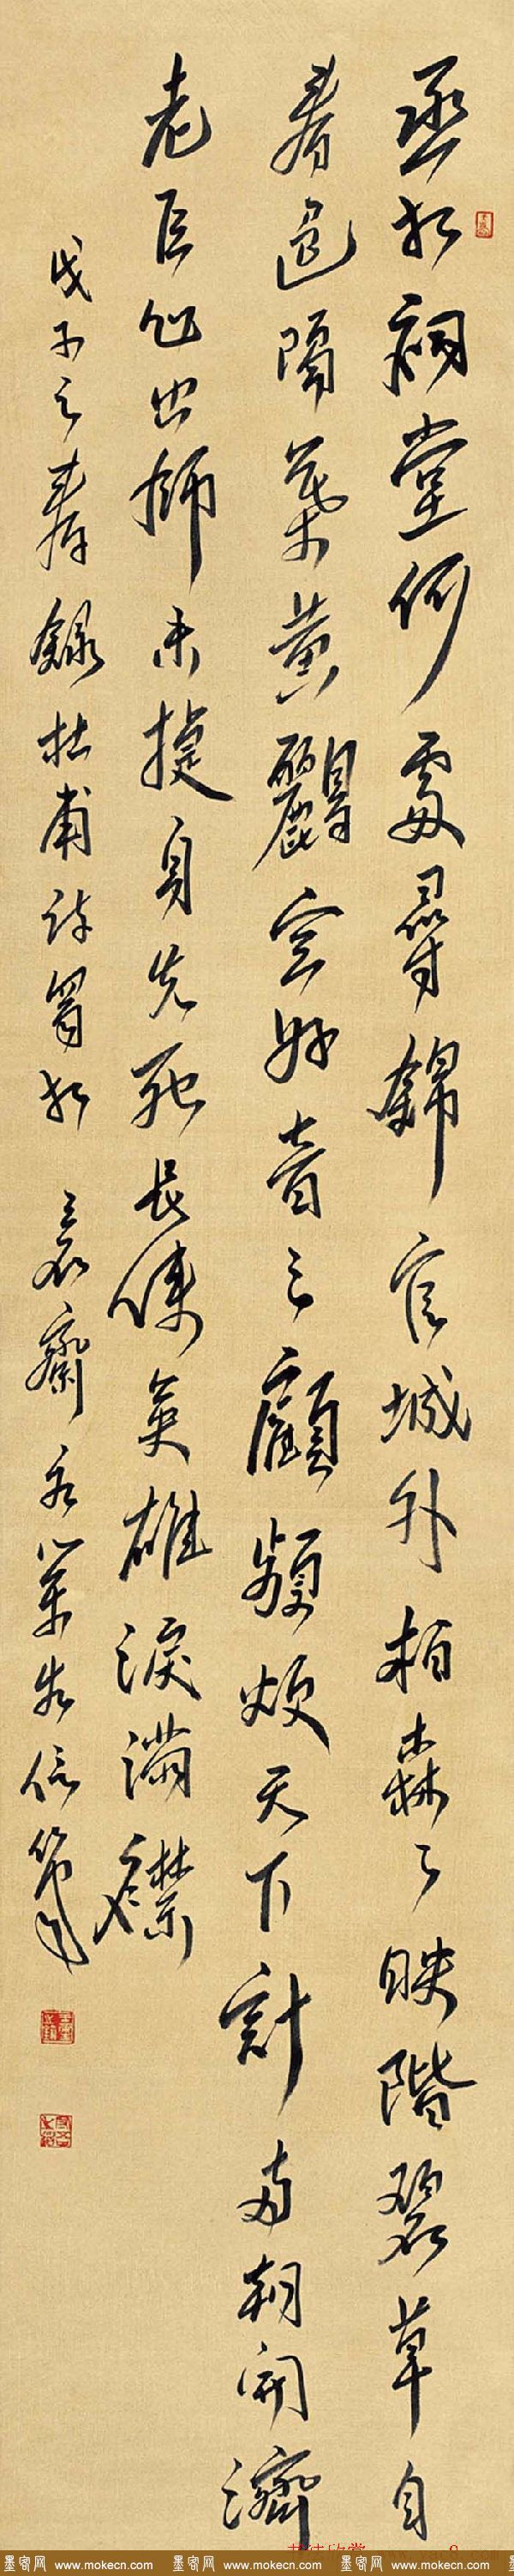 丞相祠堂何處尋錦官城外柏森々映階碧草自
春色隔葉黃鸝空好音三顧頻煩天下計兩朝開濟
老臣心出師未捷身先死長使英雄淚滿襟
戊子之春錄杜甫詩蜀相 三石齋 信筆
墨客网 www.mokecn.com 墨客网 www.mokecn.com 墨客网 www.mokecn.com